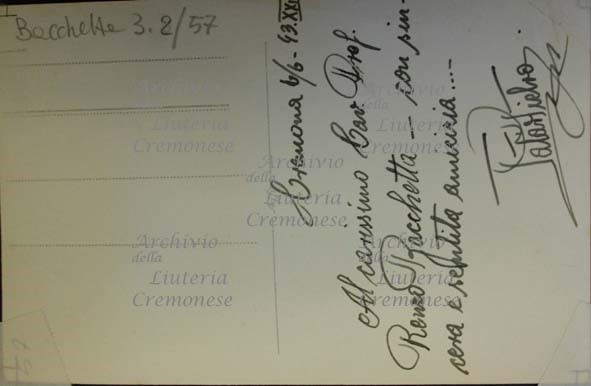 Bacchetta 3.2/57
Cremona 6/6-43.XXI
Al carissimo Cav. Prof.
Renzo Bacchetta - con sin-
cera e sentita amicizia...-
Archivio
della
Liuteria
Cremonese
Archivio
della
Liuteria
Cremonese
Archivio
della
Liuteria
Cremonese
Archivio
della
Liuteria
Cremonese
Archivio
della
Liuteria
Cremonese
57